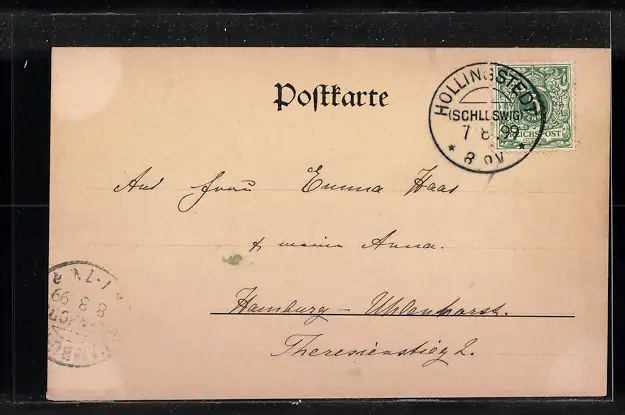 Postkarte
HOLLINGSTEDT
(SCHLESWIG)
7 8 .99
* 8-9V *
REICHSPOST
Frau Emma Haas
Anna.
Hamburg – Uhlenhorst.
Theresienstieg 2.
8 8 99